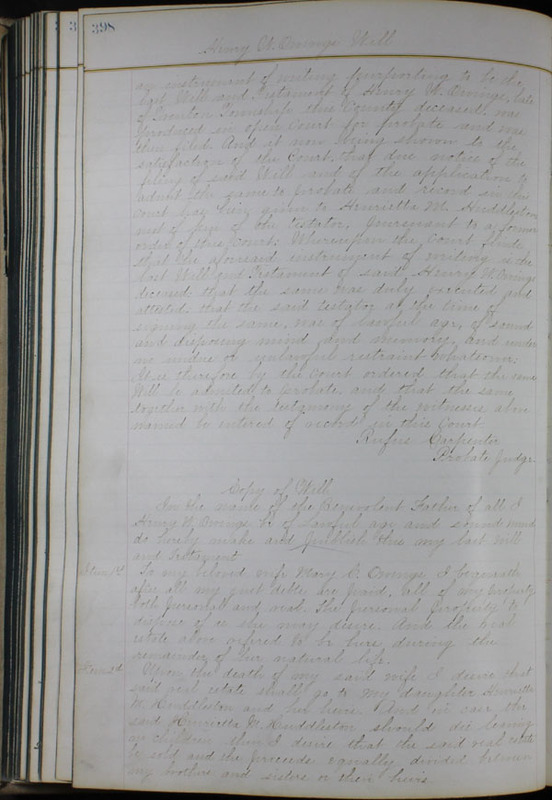 398
Henry W. Owings Will
an instrument of writing purporting to be the
last Will and Testament of Henry W. Owings, late
of Township this County deceased, was
produced in open Court for probate and was
then filed. And it now being shown to the
satisfaction of the Court, that due notice of the
filing of said Will and of the application to
admit the same to probate and record in this
Court has been given to Henrietta M. Huddleston
next of kin of the testator, pursuant to a former
order of this Court; Whereupon the Court finds
that the aforesaid instrument of writing is the
last Will and Testament of said Henry W. Owings
deceased, that the same was duly executed and
attested, that the said testator at the time of
signing the same, was of lawful age, of sound
and disposing mind and memory, and under
no undue or unlawful restraint whatsoever;
It is therefore by the Court ordered that the same
Will be admitted to probate, and that the same
together with the testimony of the witnesses above
named be entered of record in this Court.
Rufus Carpenter
Probate Judge
Copy of Will
In the name of the Benevolent Father of all I
Henry W. Owings of lawful age and sound mind
do hereby make and publish this my last will
and Testament
Item 1st To my beloved wife Mary Owings I bequeath
after all my just debts are paid, all of my property
both personal and real. The personal property to
dispose of as she may desire. And the real
estate above refered to be hers during the
remainder of her natural life.
Item 2d Upon the death of my said wife I desire that
said real estate shall go to my daughter Henrietta
M. Huddleston and her heirs. And in case the
said Henrietta M. Huddleston should die leaving
no children then I desire that the said real estate
be sold and the proceeds equally divided between
my brothers and sisters or their heirs